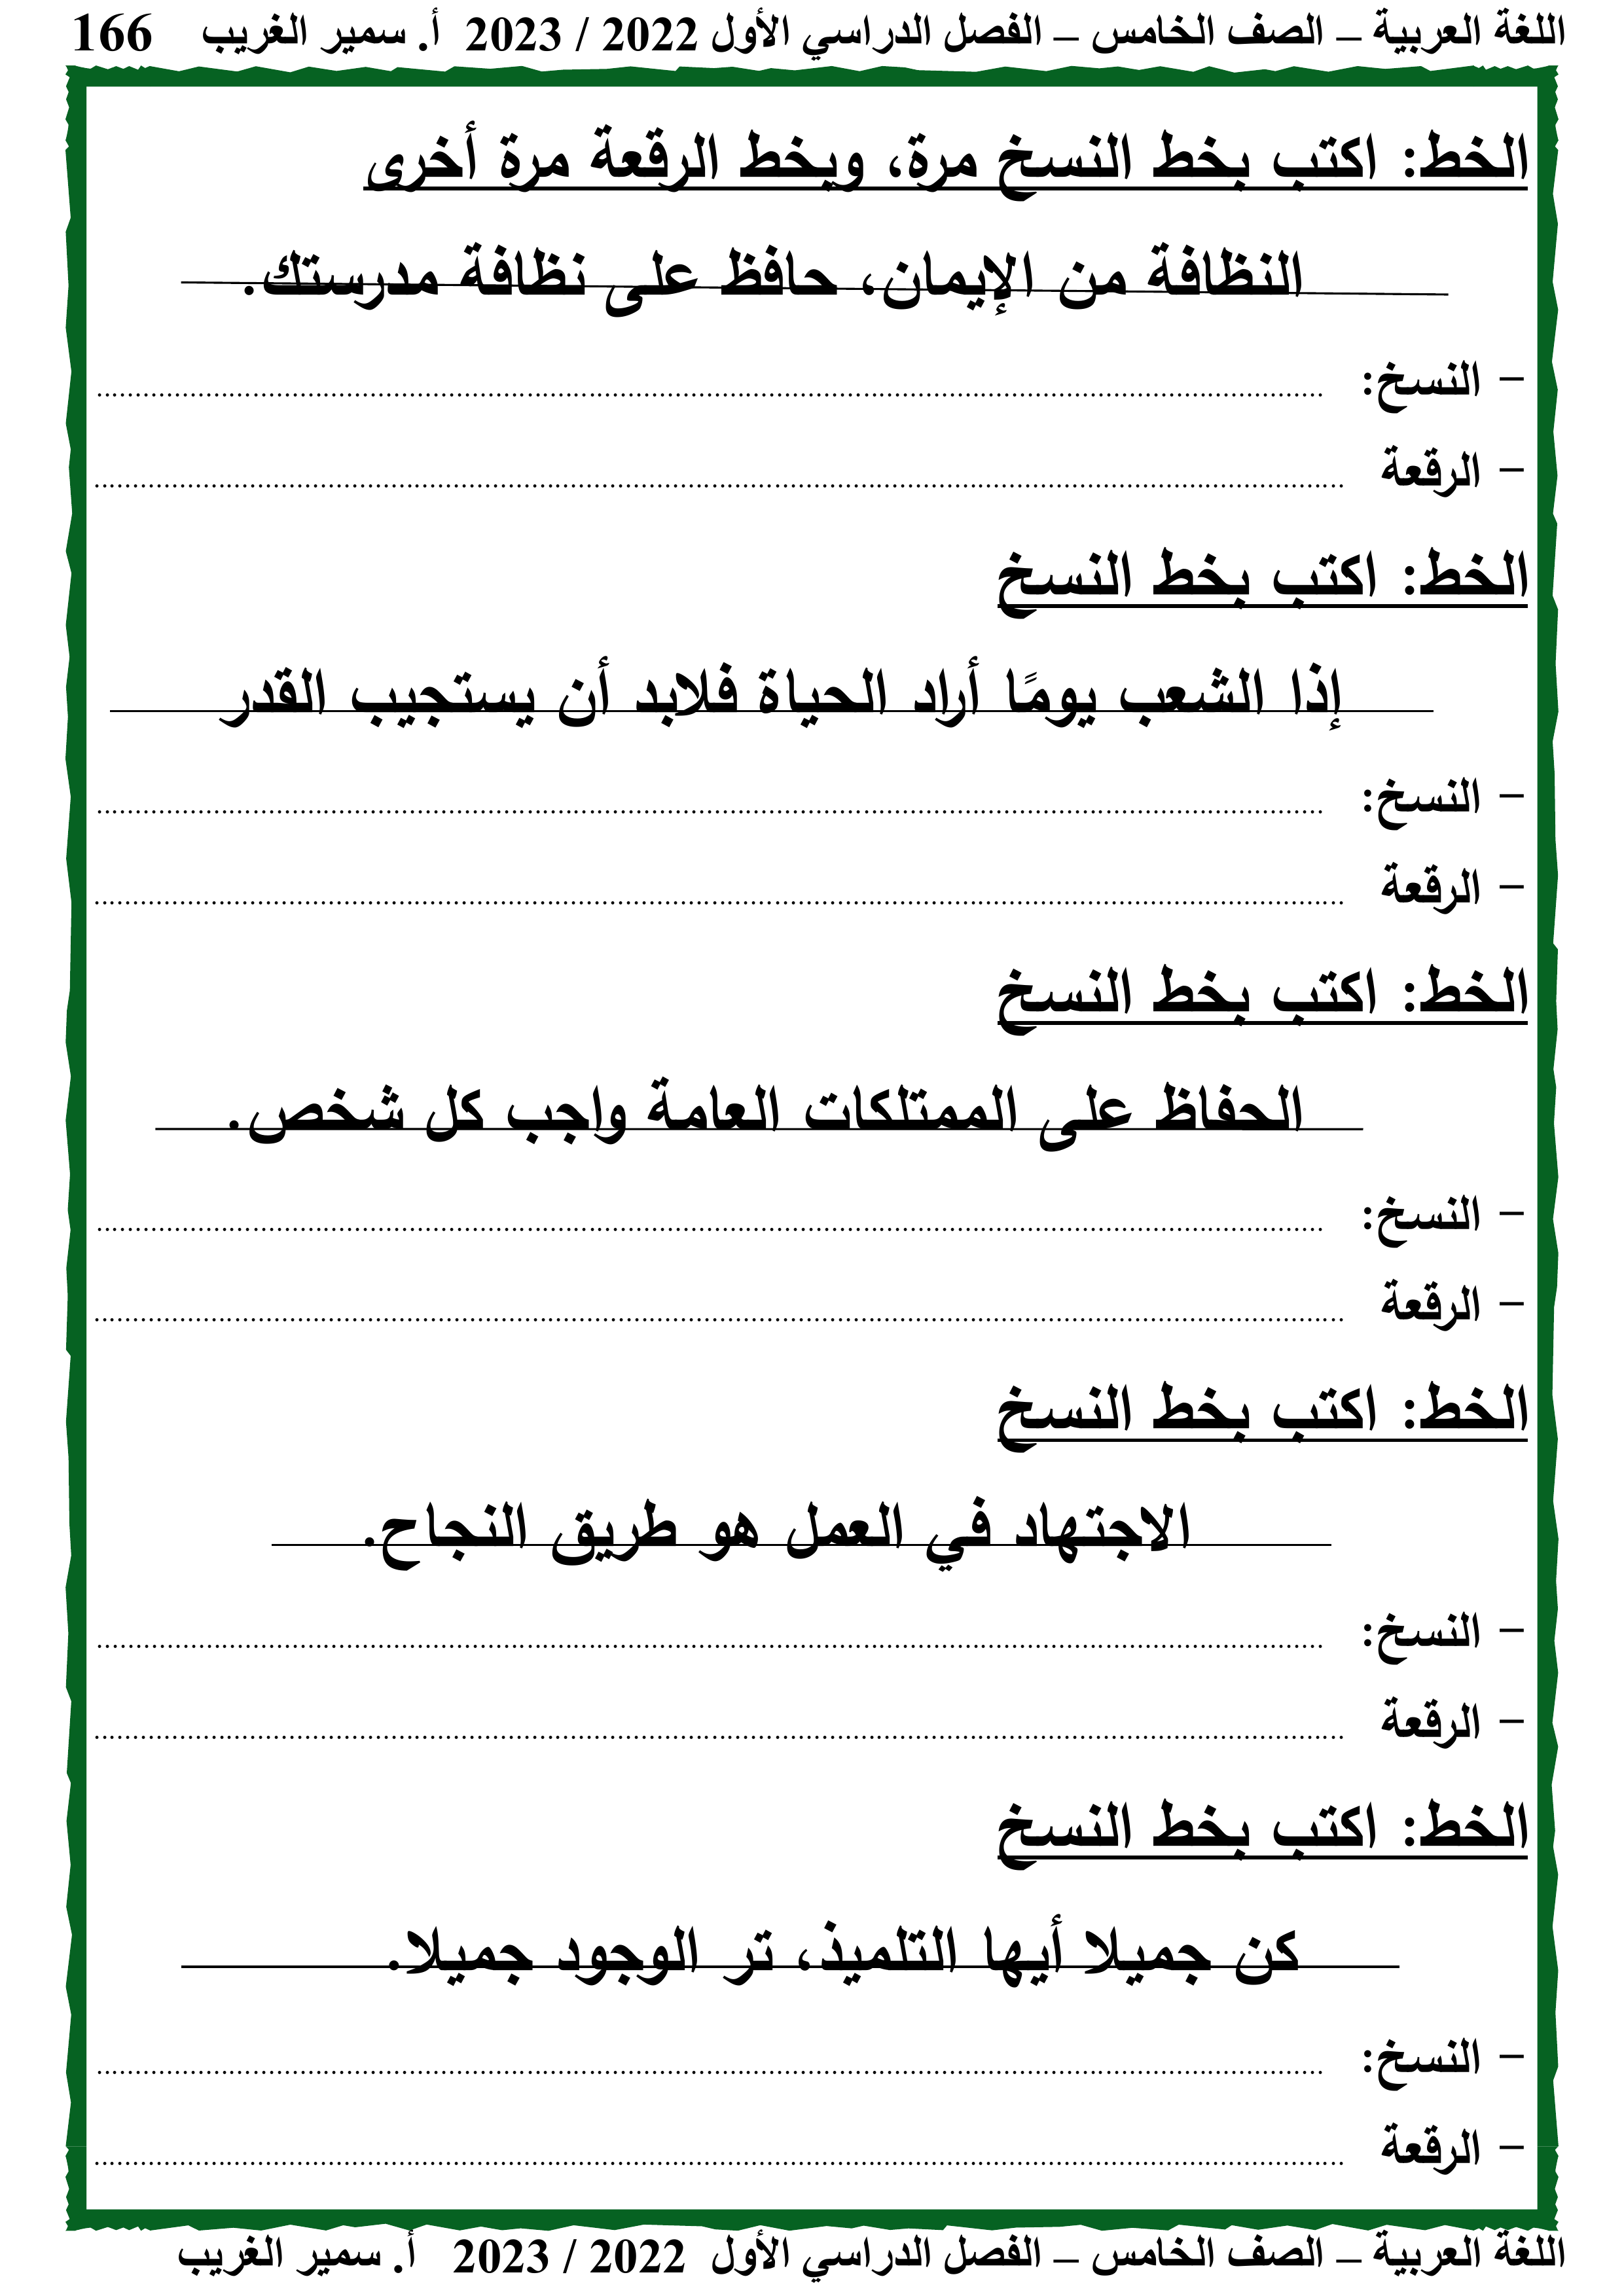 اللغة العربية – الصف الخامس – الفصل الدراسي الأول 2022 / 2023 أ. سمير الغريب 166
الخط: اكتب بخط النسخ مرة، وبخط الرقعة مرة أخرى
النظافة من الإيمان، حافظ على نظافة مدرستك.
– النسخ: ........................................
– الرقعة ........................................
الخط: اكتب بخط النسخ
إذا الشعب يومًا أراد الحياة فلابد أن يستجيب القدر
– النسخ: ........................................
– الرقعة ........................................
الخط: اكتب بخط النسخ
الحفاظ على الممتلكات العامة واجب كل شخص.
– النسخ: ........................................
– الرقعة ........................................
الخط: اكتب بخط النسخ
الاجتهاد في العمل هو طريق النجاح.
– النسخ: ........................................
– الرقعة ........................................
الخط: اكتب بخط النسخ
كن جميلا أيها التلميذ، تر الوجود جميلا.
– النسخ: ........................................
– الرقعة ........................................
اللغة العربية – الصف الخامس – الفصل الدراسي الأول 2022 / 2023 أ. سمير الغريب